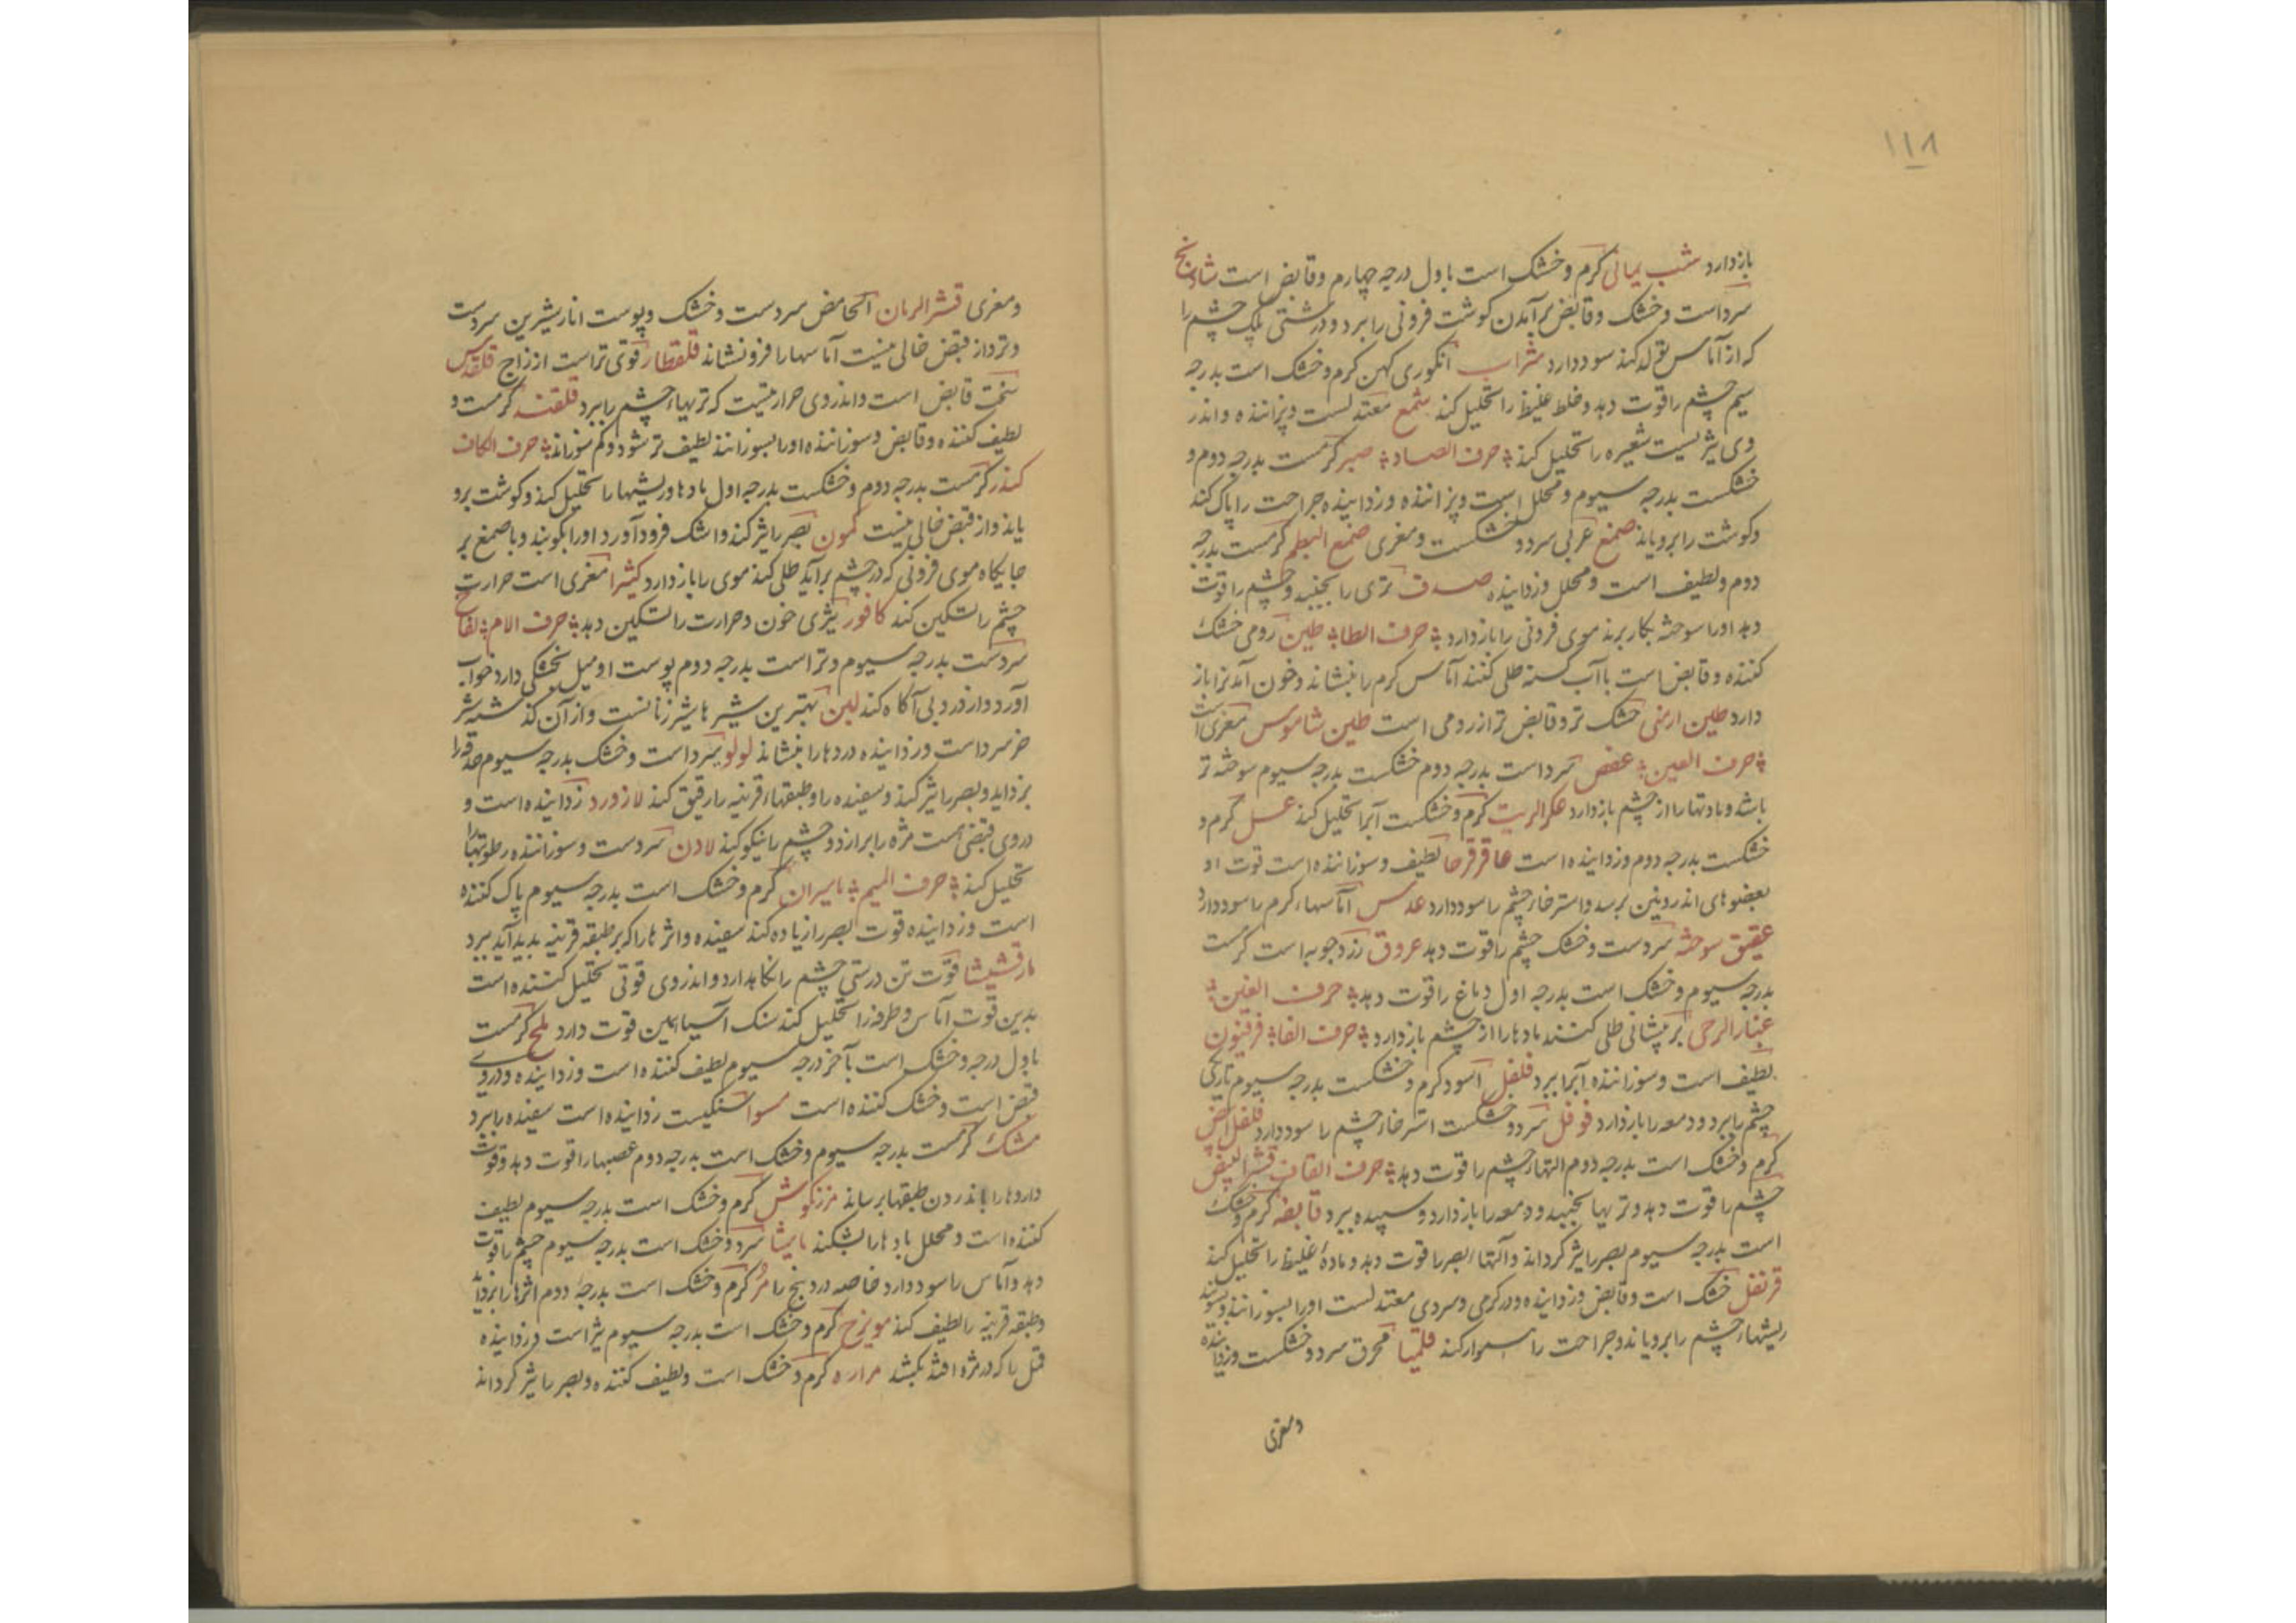 ۱۱۸
بازدارد شب یمانی کرم و خشک است باول درجه چهارم و قابض است شادنج
سرد است و خشک و قابض برآمدن کوشت فزونی را ببرد و درشتی پلک چشم را
که از آماس تولد کند سود دارد شراب انکوری کهن کرم و خشک است بدرجه
سیم چشم را قوت دهد و خلط غلیظ را تحلیل کند شمع معتدلست و پزاننده و اندر
وی شعیره را تحلیل کند حرف الصاد صبر کرمست بدرجه دوم و
خشکست بدرجه سیوم و محلل است و پزاننده و زداینده جراحت را پاک کند
و کوشت را برویاند صمغ عربی سرد و خشکست و مغری صمغ البطم کرمست بدرجه
دوم و لطیف است و محلل و زداینده صدف تری را بچیند و چشم را قوت
دهد او را سوخته بکار برند موی فزونی را بازدارد حرف الطا طین رومی خشک
کننده و قابض است با آب طلی کنند آماس کرم را بنشاند و خون آمدنرا باز
دارد طین ارمنی خشک تر و قابض تر از رومی است طین شاموس مغری است
حرف العین عفص سرد است بدرجه دوم خشکست بدرجه سیوم سوخته تر
باشد و مادتها را از چشم بازدارد عکر الزیت کرم و خشکست آبرا تحلیل کند عسل کرم و
خشکست بدرجه دوم و زداینده است عاقرقرحا لطیف و سوزاننده است قوت او
بعضوهای اندرونین برسد و استرخاء چشم را سود دارد عدس آماسهاء کرم را سود دارد
عقیق سوخته سردست و خشک چشم را قوت دهد عروق زردچوبه است کرمست
بدرجه سیوم و خشک است بدرجه اول دماغ را قوت دهد حرف الغین
غبار الرحی بر پیشانی طلی کنند مادها را از چشم بازدارد حرف الفا فرفیون
لطیف است و سوزاننده آبرا ببرد فلفل اسود کرم و خشکست بدرجه سیوم تاریکی
چشم را ببرد و دمعه را بازدارد فوفل سرد و خشکست استرخاء چشم را سود دارد فلفل ابیض
کرم و خشک است بدرجه دوم التهاء چشم را قوت دهد حرف القاف قشر البیض
چشم را قوت دهد و تریها بچیند و دمعه را بازدارد و سپیده ببرد کرم و خشک
است بدرجه سیوم بصر را تیز کرداند و آلتهاء بصر را قوت دهد و مادهٔ غلیظ را تحلیل کند
قرنفل خشک است و قابض و زداینده و در کرمی و سردی معتدلست او را بسوزانند و بشویند
ریشهاء چشم را برویاند و جراحت را هموار کند قلمیا محرق سرد و خشکست و زداینده
و مغری
و مغری قشر الرمان الحامض سردست و خشک و پوست انار شیرین سردست
و تر و از قبض خالی نیست آماسها را فرونشاند قلقطار قوی تر است از زاج قلقدیس
سخت قابض است و اندر وی حرارتیست که تریهاء چشم را ببرد قلقنه کرمست و
لطیف کننده و قابض و سوزاننده او را بسوزانند لطیف تر شود و کم سوزاند حرف الکاف
کندر کرمست بدرجه دوم و خشکست بدرجه اول بادها و ریشها را تحلیل کند و کوشت برو
یاند و از قبض خالی نیست کمون بصر را تیز کند و اشک فرود آورد او را بکوبند و با صمغ بر
جایکاه موی فزونی که در چشم برآید طلی کنند موی را بازدارد کثیرا مغری است حرارت
چشم را تسکین کند کافور تیزی خون و حرارت را تسکین دهد حرف اللام لفاح
سردست بدرجه سیوم و تر است بدرجه دوم پوست او میل بخشکی دارد خواب
آورد و از درد بی آکاه کند لبن بهترین شیرها شیر زنانست و از آن کذشته شیر
خر سرد است و زداینده دردها را بنشاند لولو سرد است و خشک بدرجه سیوم حدقه را
بزداید و بصر را تیز کند و سفیده را و طبقهاء قرنیه را رقیق کند لازورد زداینده است و
در وی قبضی است مژه را برازد و چشم را نیکو کند لادن سردست و سوزاننده رطوبتها را
تحلیل کند حرف المیم مامیران کرم و خشک است بدرجه سیوم پاک کننده
است و زداینده قوت بصر را زیاده کند سفیده و اثرها را که بر طبقه قرنیه پدید آید ببرد
مارقشیشا قوت تن درستی چشم را نکاهدارد و اندر وی قوتی تحلیل کننده است
بدین قوت آماس و طرفه را تحلیل کند سنک آسیا همین قوت دارد ملح کرمست
باول درجه و خشک است بآخر درجه سیوم لطیف کننده است و زداینده و در وی
قبض است و خشک کننده است سنکیست زداینده است سفیده را ببرد
مشک کرمست بدرجه سیوم و خشک است بدرجه دوم عصبها را قوت دهد و قوت
داروها را باندرون طبقها برساند مرزنکوش کرم و خشک است بدرجه سیوم لطیف
کننده است و محلل بادها را بشکند مامیثا سرد و خشک است بدرجه سیوم چشم را قوت
دهد و آماس را سود دارد خاصه درد بخ را مر کرم و خشک است بدرجه دوم اثرها را بزداید
و طبقه قرنیه را لطیف کند مویزج کرم و خشک است بدرجه سیوم تیز است و زداینده
قمل را که در مژه افتد بکشد مراره کرم و خشک است و لطیف کننده و بصر را تیز کرداند